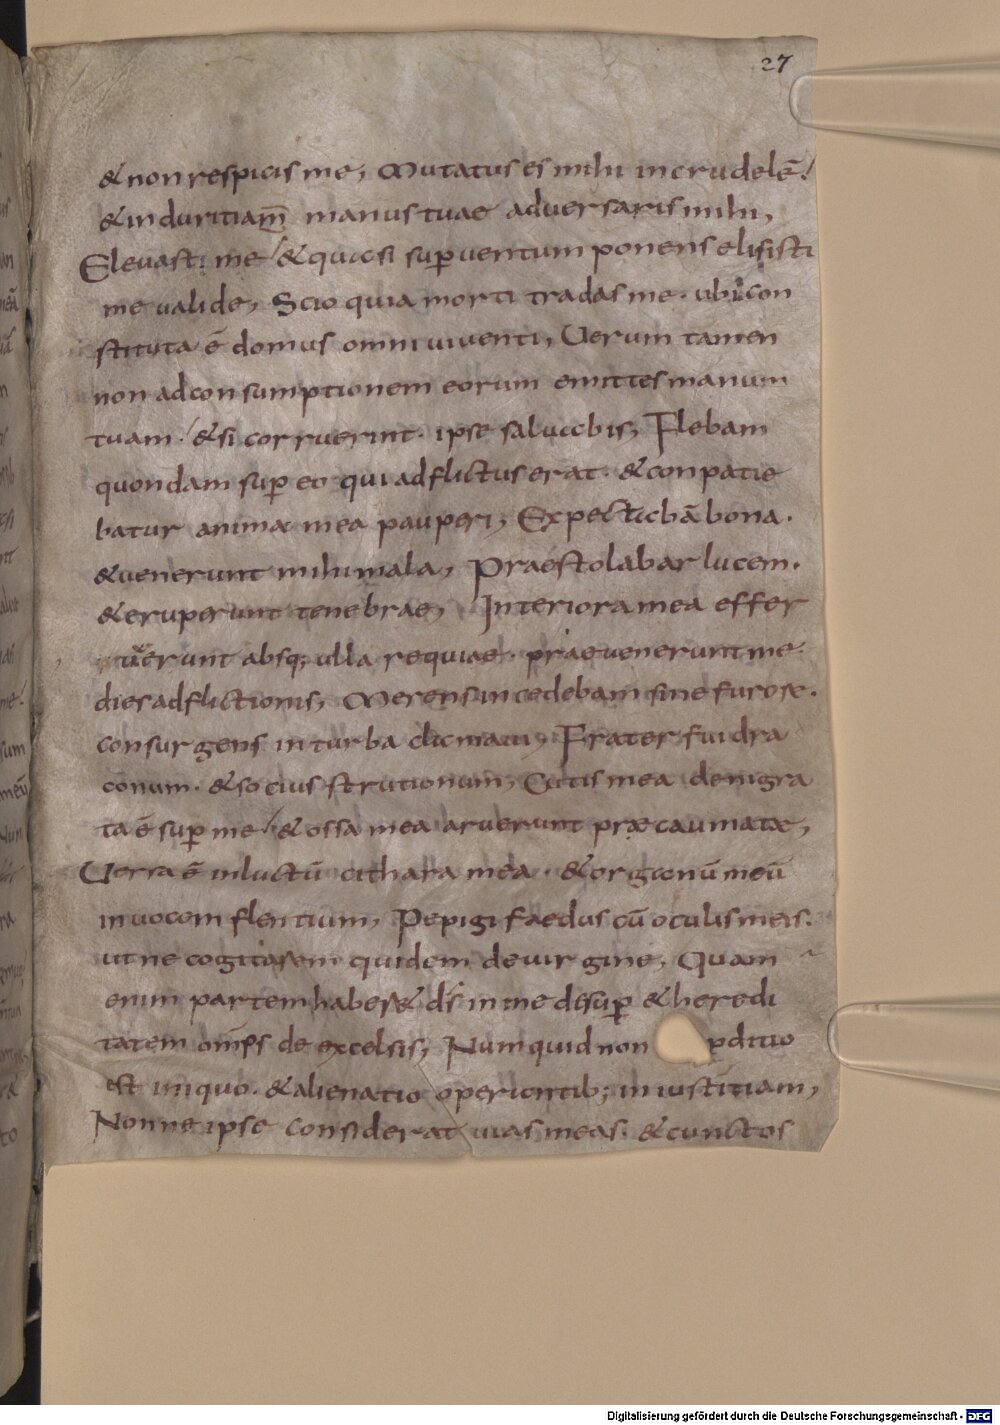 27
& non respicis me; Mutatus es mihi in crudelē!
& in duritiam̅ manus tuae adversaris mihi;
Elevasti me & quasi sup̄ ventum ponens elisisti
me valide; Scio quia morti tradas me· ubi con
stituta ē domus omni viventi; Verum tamen
non ad consumptionem eorum emittes manum
tuam· & si corruerint· ipse salvabis; Flebam
quondam sup̄ eo qui adflictus erat· & conpatie
batur anima mea pauperi; Expectabā bona·
& venerunt mihi mala; Praestolabar lucem·
& eruperunt tenebrae; Interiora mea effer
uerunt absq; ulla requiae· praevenerunt me
dies adflictionis; Merens incedebam sine furore·
consurgens in turba clamavi; Frater fui dra
conum· & socius strutionum; Cutis mea denigra
ta ē sup̄ me & ossa mea aruerunt prae caumatae;
Versa ē in luctū cithara mea· & organū meū
in vocem flentium; Pepigi faedus cū oculis meis·
ut ne cogitarem quidem de virgine; Quam
enim partem haber& d̄s in me desup̄ & heredi
tatem omp̄s de excelsis; Numquid non p̄ditio
est iniquo· & alienatio operantib; iniustitiam;
Nonne ipse considerat vias meas· & cunctos
Digitalisierung gefördert durch die Deutsche Forschungsgemeinschaft - DFG